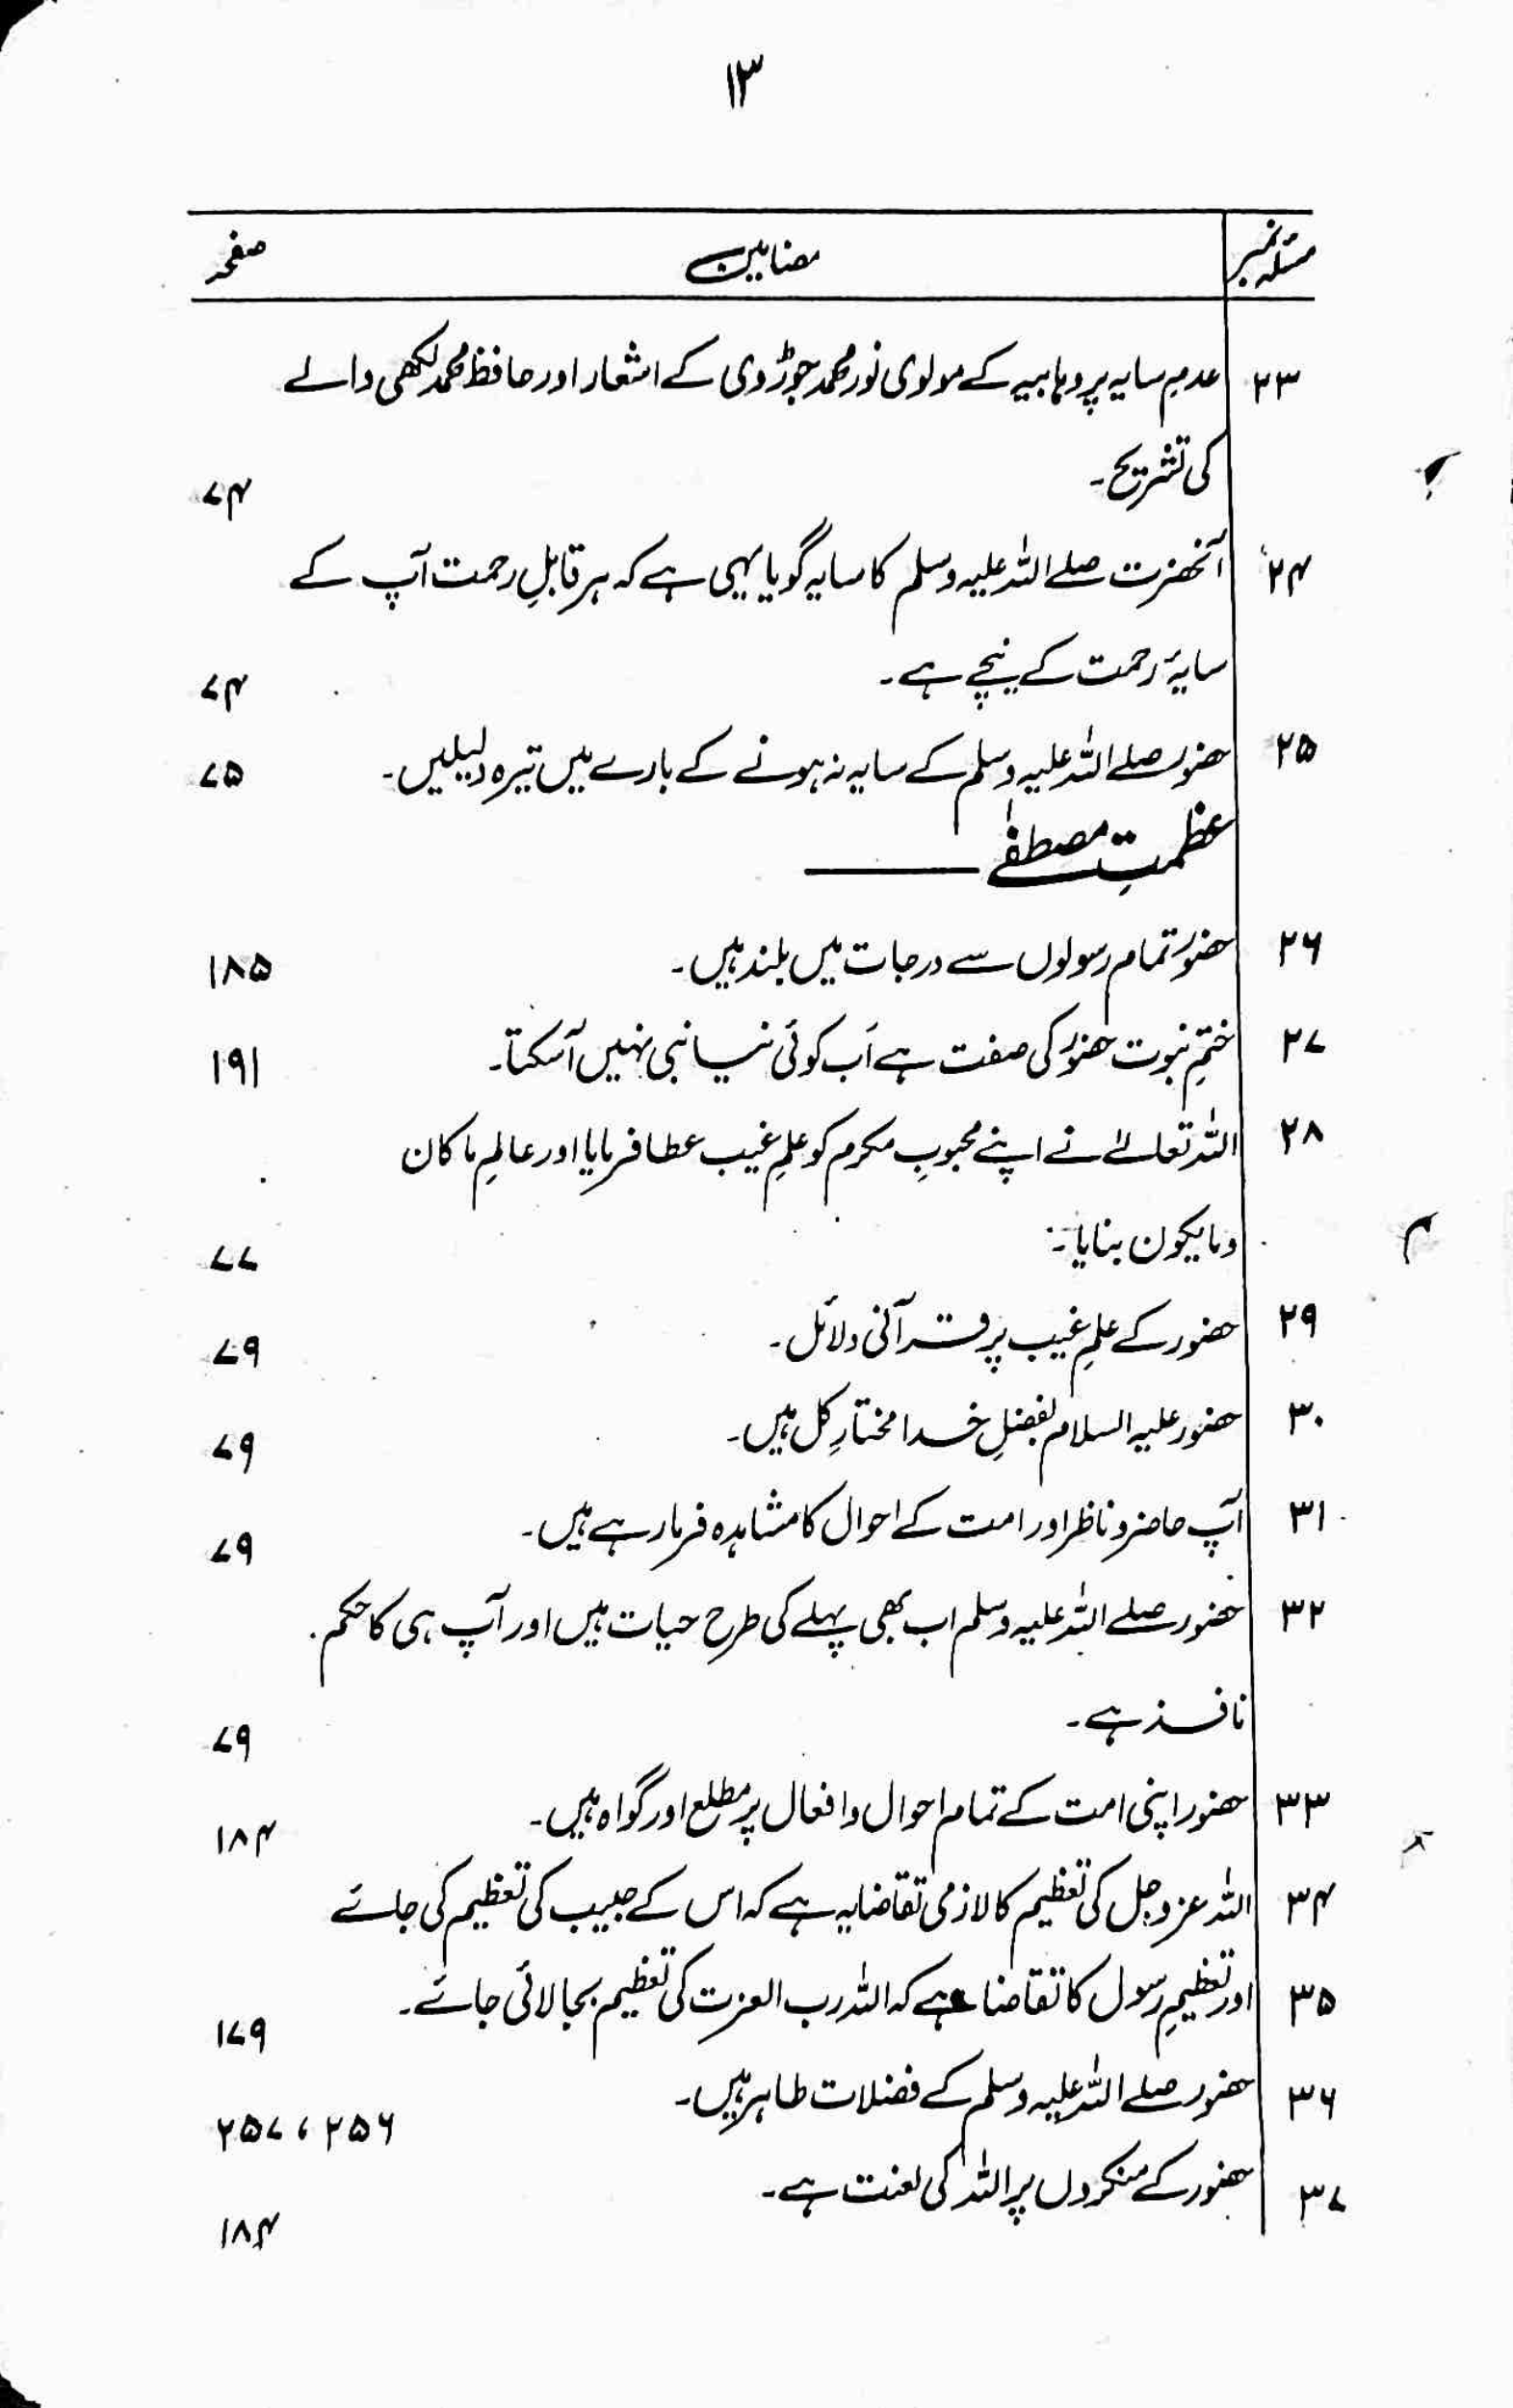 ۱۳
مسئلہ نمبر مضامین صفحہ
۲۳ عدمِ سایہ پر وہابیہ کے مولوی نور محمد جوڑوی کے اشعار اور حافظ محمد لکھی والے
کی تشریح۔ ۷۴
۲۴ آنحضرت صلے اللہ علیہ وسلم کا سایہ گویا یہی ہے کہ ہر قابلِ رحمت آپ کے
سایۂ رحمت کے نیچے ہے۔ ۷۴
۲۵ حضور صلے اللہ علیہ وسلم کے سایہ نہ ہونے کے بارے میں تیرہ دلیلیں۔ ۷۵
عظمتِ مصطفٰے
۲۶ حضورؐ تمام رسولوں سے درجات میں بلند ہیں۔ ۱۸۵
۲۷ ختمِ نبوت حضورؐ کی صفت ہے اَب کوئی نیا نبی نہیں آسکتا۔ ۱۹۱
۲۸ اللہ تعالےٰ نے اپنے محبوبِ مکرم کو علمِ غیب عطا فرمایا اور عالمِ ما کان
وما یکون بنایا۔ ۷۷
۲۹ حضور کے علمِ غیب پر قرآنی دلائل۔ ۷۹
۳۰ حضور علیہ السلام بفضلِ خدا مختارِ کل ہیں۔ ۷۹
۳۱ آپ حاضر و ناظر اور امت کے احوال کا مشاہدہ فرما رہے ہیں۔ ۷۹
۳۲ حضور صلے اللہ علیہ وسلم اب بھی پہلے کی طرح حیات ہیں اور آپ ہی کا حکم
نافذ ہے۔ ۷۹
۳۳ حضور اپنی امت کے تمام احوال و افعال پر مطلع اور گواہ ہیں۔ ۱۸۴
۳۴ اللہ عزوجل کی تعظیم کا لازمی تقاضا یہ ہے کہ اس کے حبیب کی تعظیم کی جائے
۳۵ اور تعظیمِ رسول کا تقاضا ہے کہ اللہ رب العزت کی تعظیم بجا لائی جائے۔ ۱۷۹
۳۶ حضور صلے اللہ علیہ وسلم کے فضلات طاہر ہیں۔ ۲۵۶ ، ۲۵۷
۳۷ حضور کے منکروں پر اللہ کی لعنت ہے۔ ۱۸۴